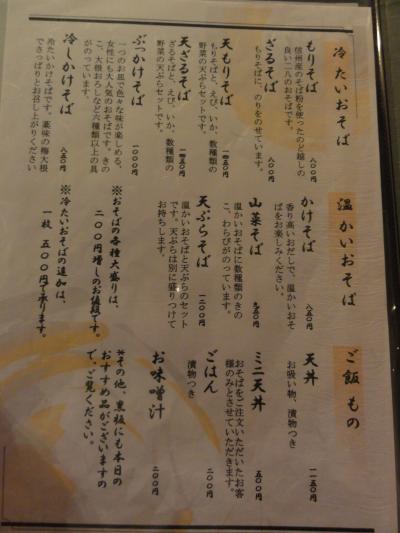 冷たいおそば
もりそば 八〇〇円
信州産のそば粉を使ったのど越しの
良い二八のおそばです。
ざるそば 八〇〇円
もりそばに、のりをのせています。
天もりそば 一四五〇円
もりそばと、えび、いか、数種類の
野菜の天ぷらセットです。
天ざるそば 一四五〇円
ざるそばと、えび、いか、数種類の
野菜の天ぷらセットです。
ぶっかけそば 一〇〇〇円
一つのお皿で色々な味が楽しめる、
女性にも大人気のおそばです。きの
こ、大根おろしなど六種類以上の具
がのっています。
冷しかけそば 八五〇円
冷たいかけそばです。薬味の梅大根
でさっぱりとお召し上がりください
温かいおそば
かけそば 八五〇円
香り高いおだしで、温かいおそ
ばをお楽しみください。
山菜そば 九五〇円
温かいおそばに数種類のきの
こ、わらびがのっています。
天ぷらそば 一二〇〇円
温かいおそばと天ぷらのセット
です。天ぷらは別に盛りつけて
お持ちします。
※おそばの各種大盛りは、
二〇〇円増しのお値段です。
※冷たいおそばの追加は、
一枚 五〇〇円で承ります。
ご飯もの
天丼 一一五〇円
お吸い物、漬物つき
ミニ天丼 五〇〇円
おそばをご注文いただいたお客
様のみとさせていただきます。
ごはん 二〇〇円
漬物つき
お味噌汁 二〇〇円
※その他、黒板にも本日の
おすすめ品がございますの
で、ご覧ください。